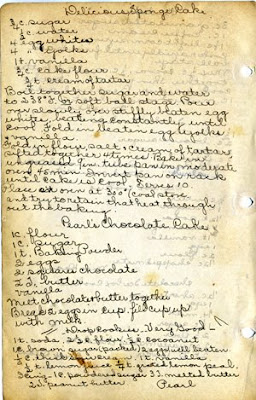 Delicious Sponge Cake
c. sugar
c. water
4 egg whites
4 " yolks
1 t. vanilla
c. cake flour
t. cream of tartar
Boil together sugar and water
to 238° F. or soft ball stage. Pour
over slowly, into stiffly beaten egg
whites, beating constantly until
cool. Fold in beaten egg yolks
& vanilla
Fold in flour, salt & cream of tartar
sifted together 4 times. Bake in
ungreased 9 in. tube pan in moderate
oven. Invert pan on rack
until cake is cool. Serves 10.
Place in oven at 310° (cool) stove
and try to retain that heat through
out the baking.
Pearl's Chocolate Cake
1 c. flour
1 c. sugar
1 t. Baking Powder
2 eggs
2 squares chocolate
butter
vanilla
Melt chocolate & butter together
Break 2 eggs in cup, fill cup up
with milk
Drop cookies - Very Good -
t. soda, flour, cocoanut
1 c. brown sugar (packed) 2 eggs well beaten
c. thick sour cream. 1 t. vanilla
t. lemon juice grated lemon peel,
powdered sugar melted butter
peanut butter Pearl